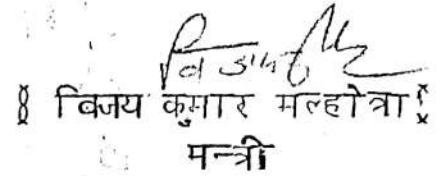 विजय कुमार मल्होत्रा
मन्त्री